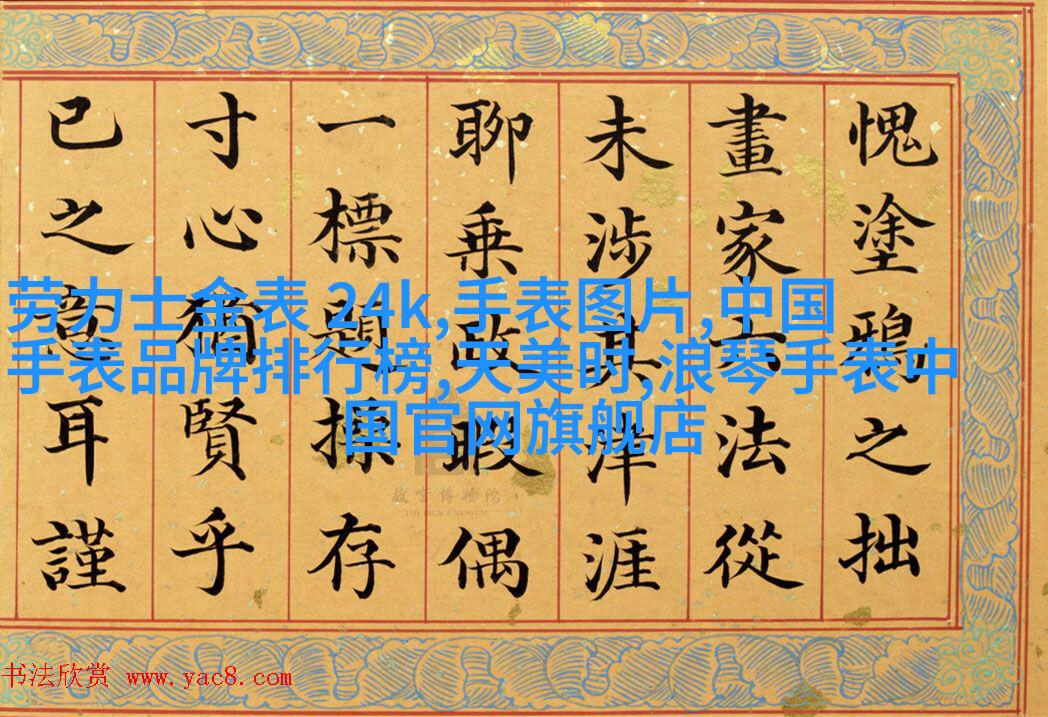 愧塗鴉之拙
畫家六法從
未涉其津涯
聊乘政暇偶
一標題操存
寸心猶賢乎
已之意耳謹
劳力士金表 24k,手表图片,中国
手表品牌排行榜,天美时,浪琴手表中
国官网旗舰店
故宫博物院
THE PALACE MUSEUM
书法欣赏 www.yac8.com